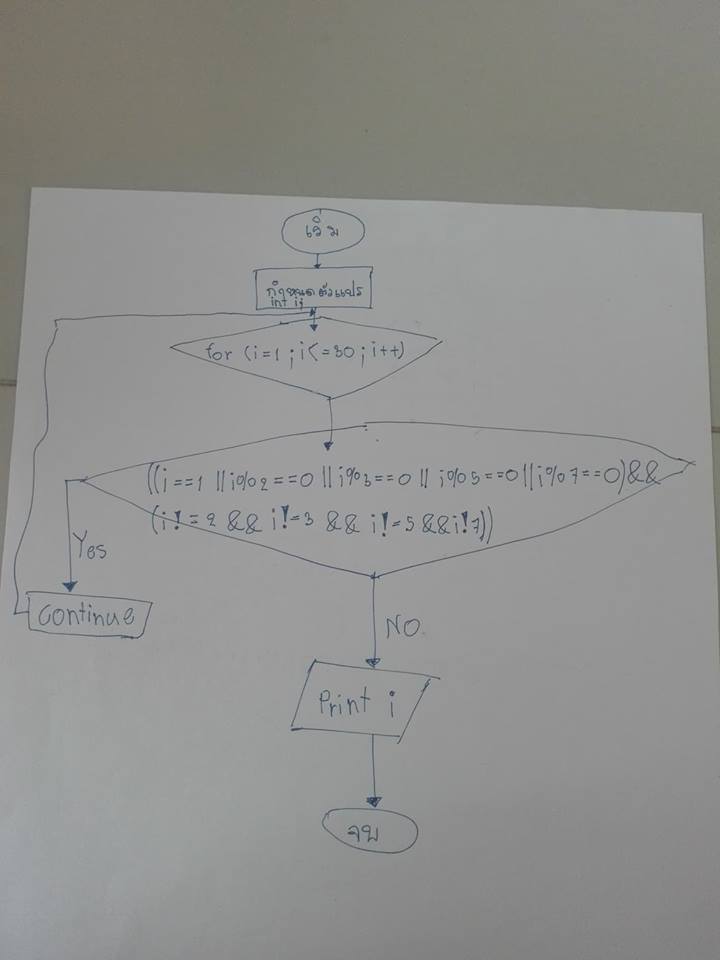 เริ่ม
กำหนดตัวแปร
int i;
for (i=1 ; i<=30 ; i++)
((i==1 || i%2==0 || i%3==0 || i%5==0 || i%7==0) &&
(i!=2 && i!=3 && i!=5 && i!7))
Yes
continue
NO
Print i
จบ